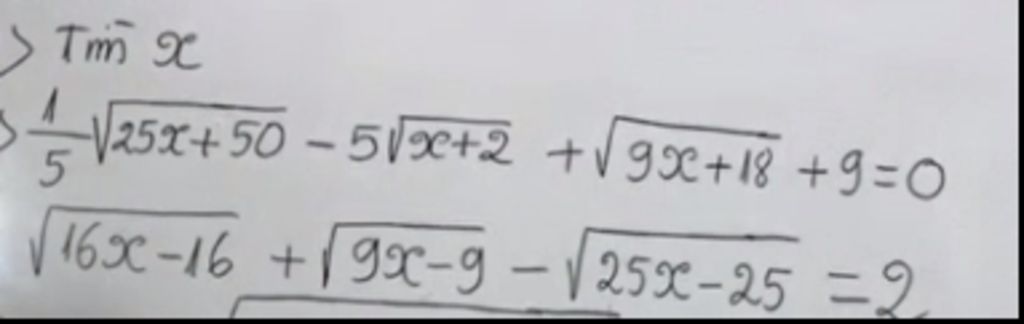 > Tìm x
> \frac{1}{5}\sqrt{25x+50} - 5\sqrt{x+2} + \sqrt{9x+18} + 9 = 0
\sqrt{16x-16} + \sqrt{9x-9} - \sqrt{25x-25} = 2